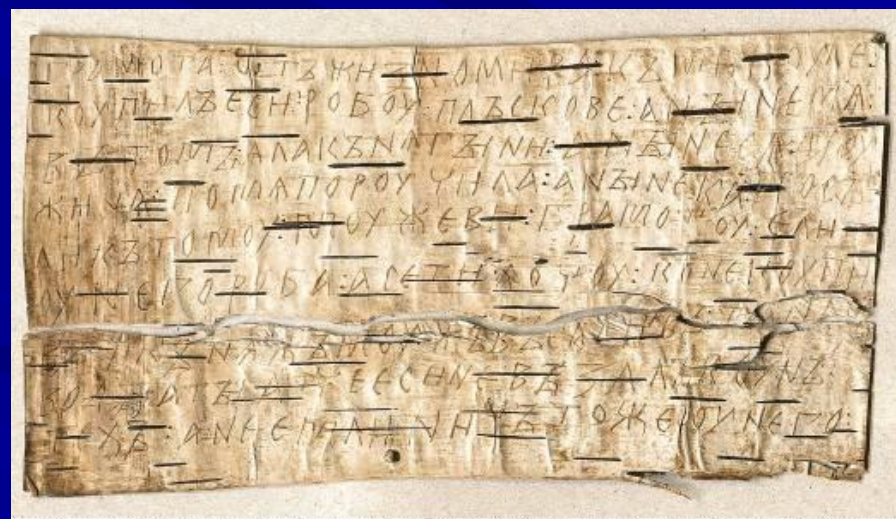 грамота : ѡтъ жизномира : къ микоуле :
коупилъ еси : робоу : плъскове : а нынѣ мѧ :
въ томъ : ѧла кънѧгыни : а нынѣ сѧ дроу
жина : по мѧ пороучила : а нынѣ ка : посъ
ли къ томоу : моужеви : грамотоу : е ли
оу него роба : а се ти хочоу : коне коупи
кънѧжъ моужъ въсадивъ
воды а ты атче еси не възалъ коунъ :
техъ : а не емли : ничъто же оу него :